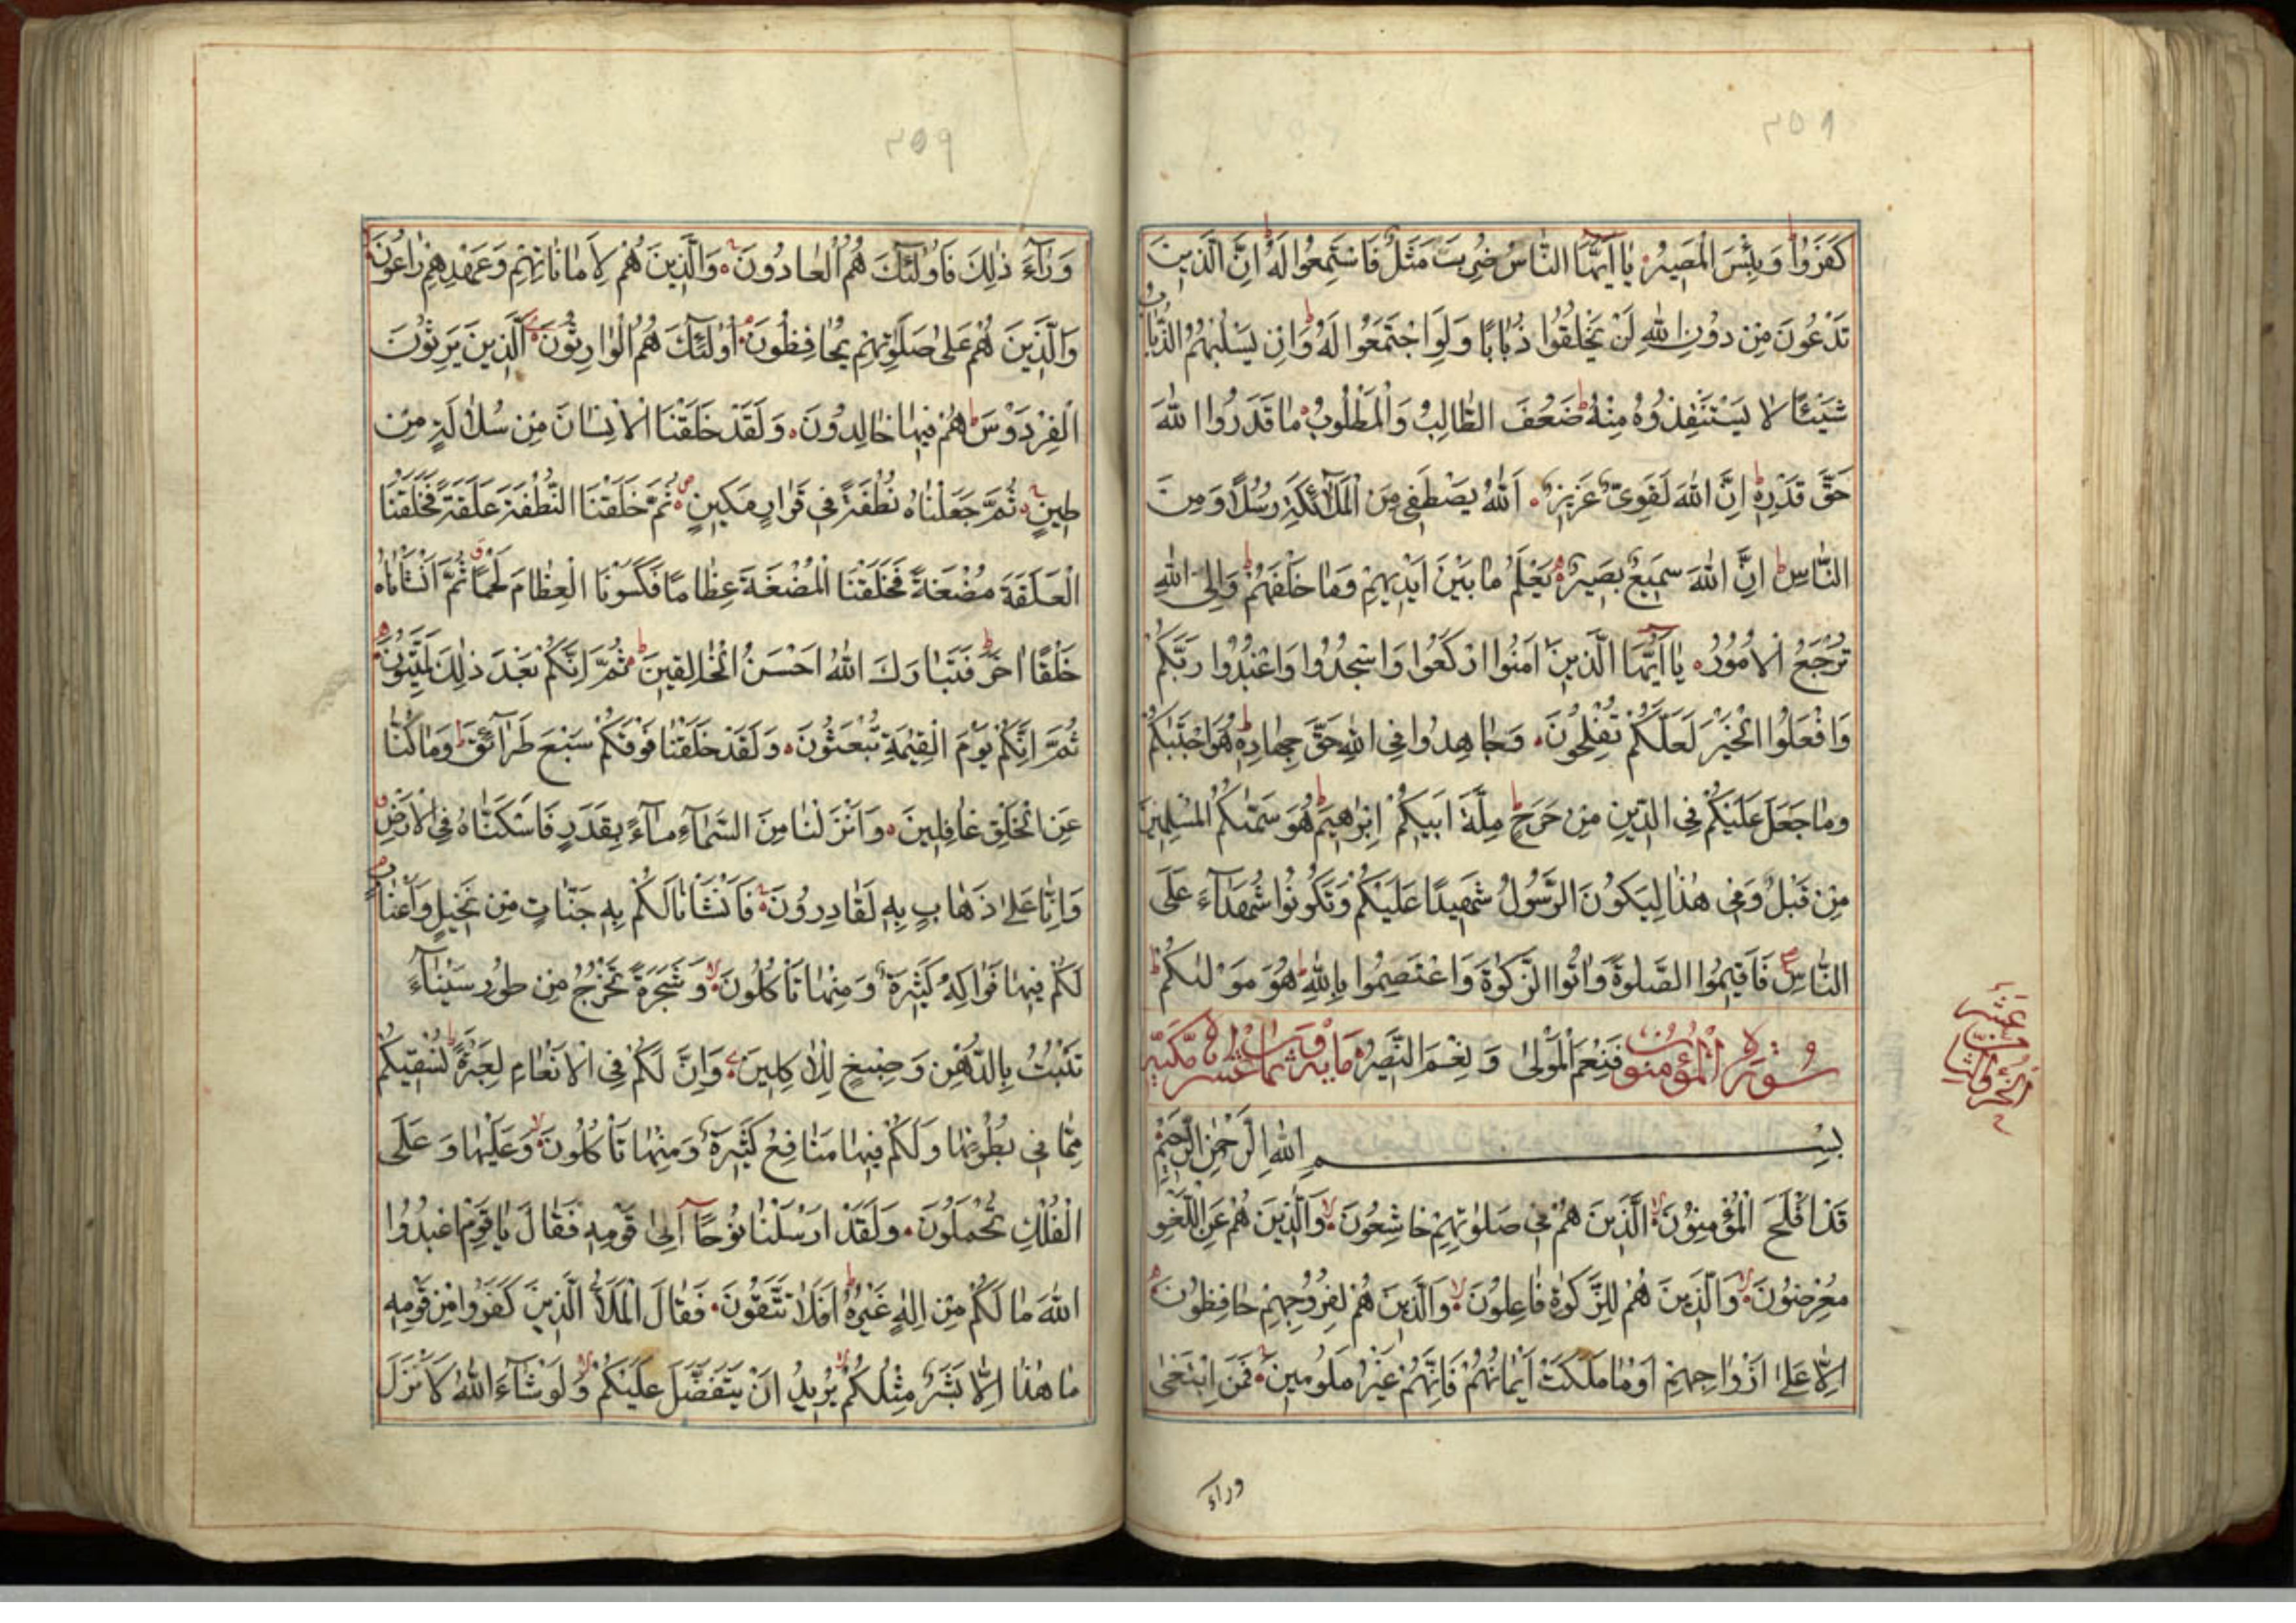 ٣٥٨
كَفَرُوا وَبِئْسَ الْمَصِيرُ يَا اَيُّهَا النَّاسُ ضُرِبَ مَثَلٌ فَاسْتَمِعُوا لَهُ اِنَّ الَّذِينَ
تَدْعُونَ مِنْ دُونِ اللهِ لَنْ يَخْلُقُوا ذُبَابًا وَلَوِ اجْتَمَعُوا لَهُ وَاِنْ يَسْلُبْهُمُ الذُّبَابُ
شَيْئًا لَا يَسْتَنْقِذُوهُ مِنْهُ ضَعُفَ الطَّالِبُ وَالْمَطْلُوبُ مَا قَدَرُوا اللهَ
حَقَّ قَدْرِهِ اِنَّ اللهَ لَقَوِيٌّ عَزِيزٌ اَللهُ يَصْطَفِي مِنَ الْمَلَائِكَةِ رُسُلًا وَمِنَ
النَّاسِ اِنَّ اللهَ سَمِيعٌ بَصِيرٌ يَعْلَمُ مَا بَيْنَ اَيْدِيهِمْ وَمَا خَلْفَهُمْ وَاِلَى اللهِ
تُرْجَعُ الْاُمُورُ يَا اَيُّهَا الَّذِينَ اٰمَنُوا ارْكَعُوا وَاسْجُدُوا وَاعْبُدُوا رَبَّكُمْ
وَافْعَلُوا الْخَيْرَ لَعَلَّكُمْ تُفْلِحُونَ وَجَاهِدُوا فِي اللهِ حَقَّ جِهَادِهِ هُوَ اجْتَبٰيكُمْ
وَمَا جَعَلَ عَلَيْكُمْ فِي الدِّينِ مِنْ حَرَجٍ مِلَّةَ اَبِيكُمْ اِبْرٰهِيمَ هُوَ سَمّٰىكُمُ الْمُسْلِمِينَ
مِنْ قَبْلُ وَفِي هٰذَا لِيَكُونَ الرَّسُولُ شَهِيدًا عَلَيْكُمْ وَتَكُونُوا شُهَدَآءَ عَلَى
النَّاسِ فَاَقِيمُوا الصَّلٰوةَ وَاٰتُوا الزَّكٰوةَ وَاعْتَصِمُوا بِاللهِ هُوَ مَوْلٰىكُمْ
سُورَةُ الْمُؤْمِنُونَ فَنِعْمَ الْمَوْلٰى وَنِعْمَ النَّصِيرُ مِايَة وَثَمَان عَشْر مَكِّيَّة
بِسْمِ اللهِ الرَّحْمٰنِ الرَّحِيمِ
قَدْ اَفْلَحَ الْمُؤْمِنُونَ الَّذِينَ هُمْ فِي صَلٰوتِهِمْ خَاشِعُونَ وَالَّذِينَ هُمْ عَنِ اللَّغْوِ
مُعْرِضُونَ وَالَّذِينَ هُمْ لِلزَّكٰوةِ فَاعِلُونَ وَالَّذِينَ هُمْ لِفُرُوجِهِمْ حَافِظُونَ
اِلَّا عَلٰى اَزْوَاجِهِمْ اَوْ مَا مَلَكَتْ اَيْمَانُهُمْ فَاِنَّهُمْ غَيْرُ مَلُومِينَ فَمَنِ ابْتَغٰى
وراء
٣٥٩
وَرَآءَ ذٰلِكَ فَاُولٰئِكَ هُمُ الْعَادُونَ وَالَّذِينَ هُمْ لِاَمَانَاتِهِمْ وَعَهْدِهِمْ رَاعُونَ
وَالَّذِينَ هُمْ عَلٰى صَلَوٰتِهِمْ يُحَافِظُونَ اُولٰئِكَ هُمُ الْوَارِثُونَ اَلَّذِينَ يَرِثُونَ
الْفِرْدَوْسَ هُمْ فِيهَا خَالِدُونَ وَلَقَدْ خَلَقْنَا الْاِنْسَانَ مِنْ سُلَالَةٍ مِنْ
طِينٍ ثُمَّ جَعَلْنَاهُ نُطْفَةً فِي قَرَارٍ مَكِينٍ ثُمَّ خَلَقْنَا النُّطْفَةَ عَلَقَةً فَخَلَقْنَا
الْعَلَقَةَ مُضْغَةً فَخَلَقْنَا الْمُضْغَةَ عِظَامًا فَكَسَوْنَا الْعِظَامَ لَحْمًا ثُمَّ اَنْشَاْنَاهُ
خَلْقًا اٰخَرَ فَتَبَارَكَ اللهُ اَحْسَنُ الْخَالِقِينَ ثُمَّ اِنَّكُمْ بَعْدَ ذٰلِكَ لَمَيِّتُونَ
ثُمَّ اِنَّكُمْ يَوْمَ الْقِيٰمَةِ تُبْعَثُونَ وَلَقَدْ خَلَقْنَا فَوْقَكُمْ سَبْعَ طَرَآئِقَ وَمَا كُنَّا
عَنِ الْخَلْقِ غَافِلِينَ وَاَنْزَلْنَا مِنَ السَّمَآءِ مَآءً بِقَدَرٍ فَاَسْكَنَّاهُ فِي الْاَرْضِ
وَاِنَّا عَلٰى ذَهَابٍ بِهِ لَقَادِرُونَ فَاَنْشَاْنَا لَكُمْ بِهِ جَنَّاتٍ مِنْ نَخِيلٍ وَاَعْنَابٍ
لَكُمْ فِيهَا فَوَاكِهُ كَثِيرَةٌ وَمِنْهَا تَاْكُلُونَ وَشَجَرَةً تَخْرُجُ مِنْ طُورِ سَيْنَآءَ
تَنْبُتُ بِالدُّهْنِ وَصِبْغٍ لِلْاٰكِلِينَ وَاِنَّ لَكُمْ فِي الْاَنْعَامِ لَعِبْرَةً نُسْقِيكُمْ
مِمَّا فِي بُطُونِهَا وَلَكُمْ فِيهَا مَنَافِعُ كَثِيرَةٌ وَمِنْهَا تَاْكُلُونَ وَعَلَيْهَا وَعَلَى
الْفُلْكِ تُحْمَلُونَ وَلَقَدْ اَرْسَلْنَا نُوحًا اِلٰى قَوْمِهِ فَقَالَ يَا قَوْمِ اعْبُدُوا
اللهَ مَا لَكُمْ مِنْ اِلٰهٍ غَيْرُهُ اَفَلَا تَتَّقُونَ فَقَالَ الْمَلَاُ الَّذِينَ كَفَرُوا مِنْ قَوْمِهِ
مَا هٰذَا اِلَّا بَشَرٌ مِثْلُكُمْ يُرِيدُ اَنْ يَتَفَضَّلَ عَلَيْكُمْ وَلَوْ شَآءَ اللهُ لَاَنْزَلَ